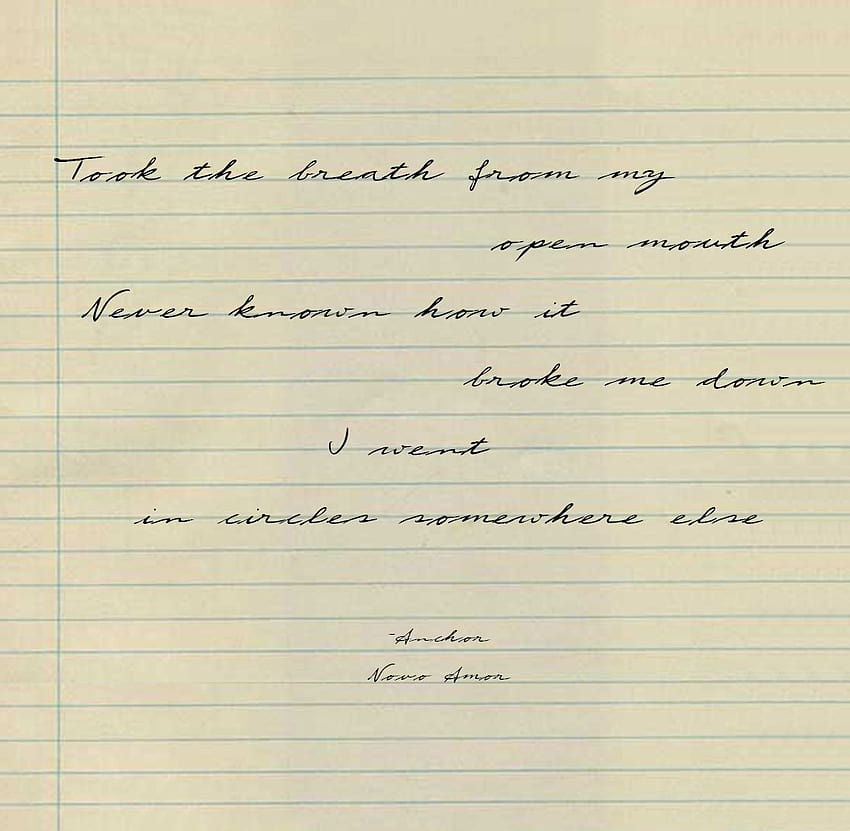 Took the breath from my
open mouth
Never known how it
broke me down
I went
in circles somewhere else
-Anchor
Novo Amor